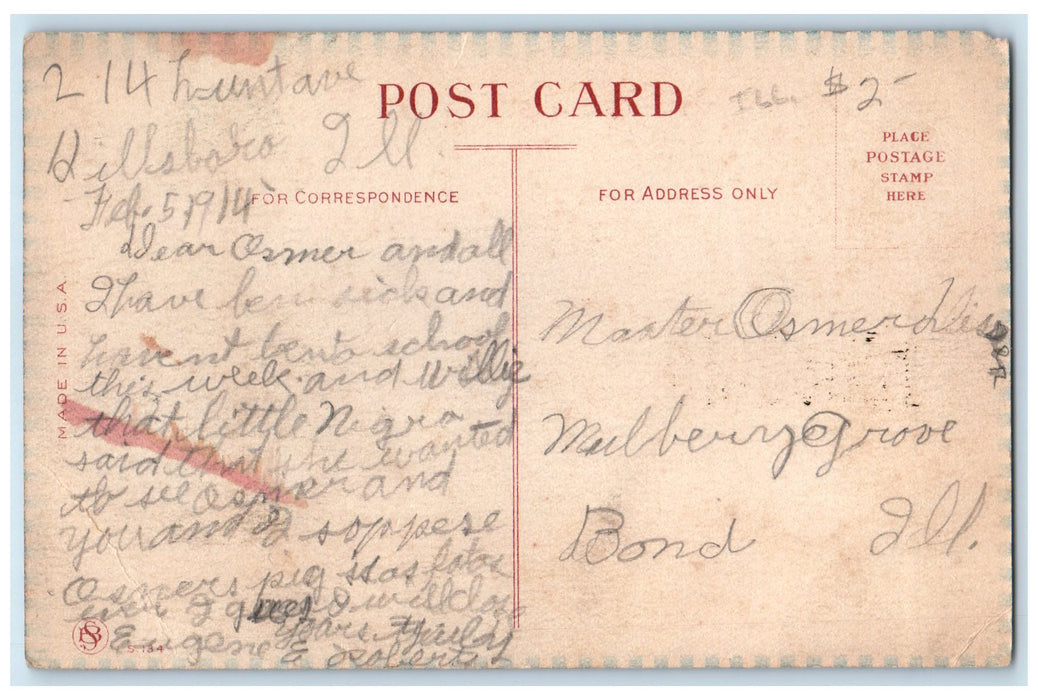 214 Hunt ave
Hillsboro Ill.
Feb. 5 1914
Dear Osmer and all
I have ben sick and
havent ben to school
this week and Willie
that little Nigro
said that he wanted
to see Osmer and
you and I soppese
Osmers pig is as fat as
ever I guess I will close
Yours Truly
Eugene E Roberts
POST CARD
ILL. $2-
PLACE
POSTAGE
STAMP
HERE
FOR CORRESPONDENCE
FOR ADDRESS ONLY
MADE IN U.S.A.
Master Osmer
Mulberry Grove
Bond Ill.
S 134